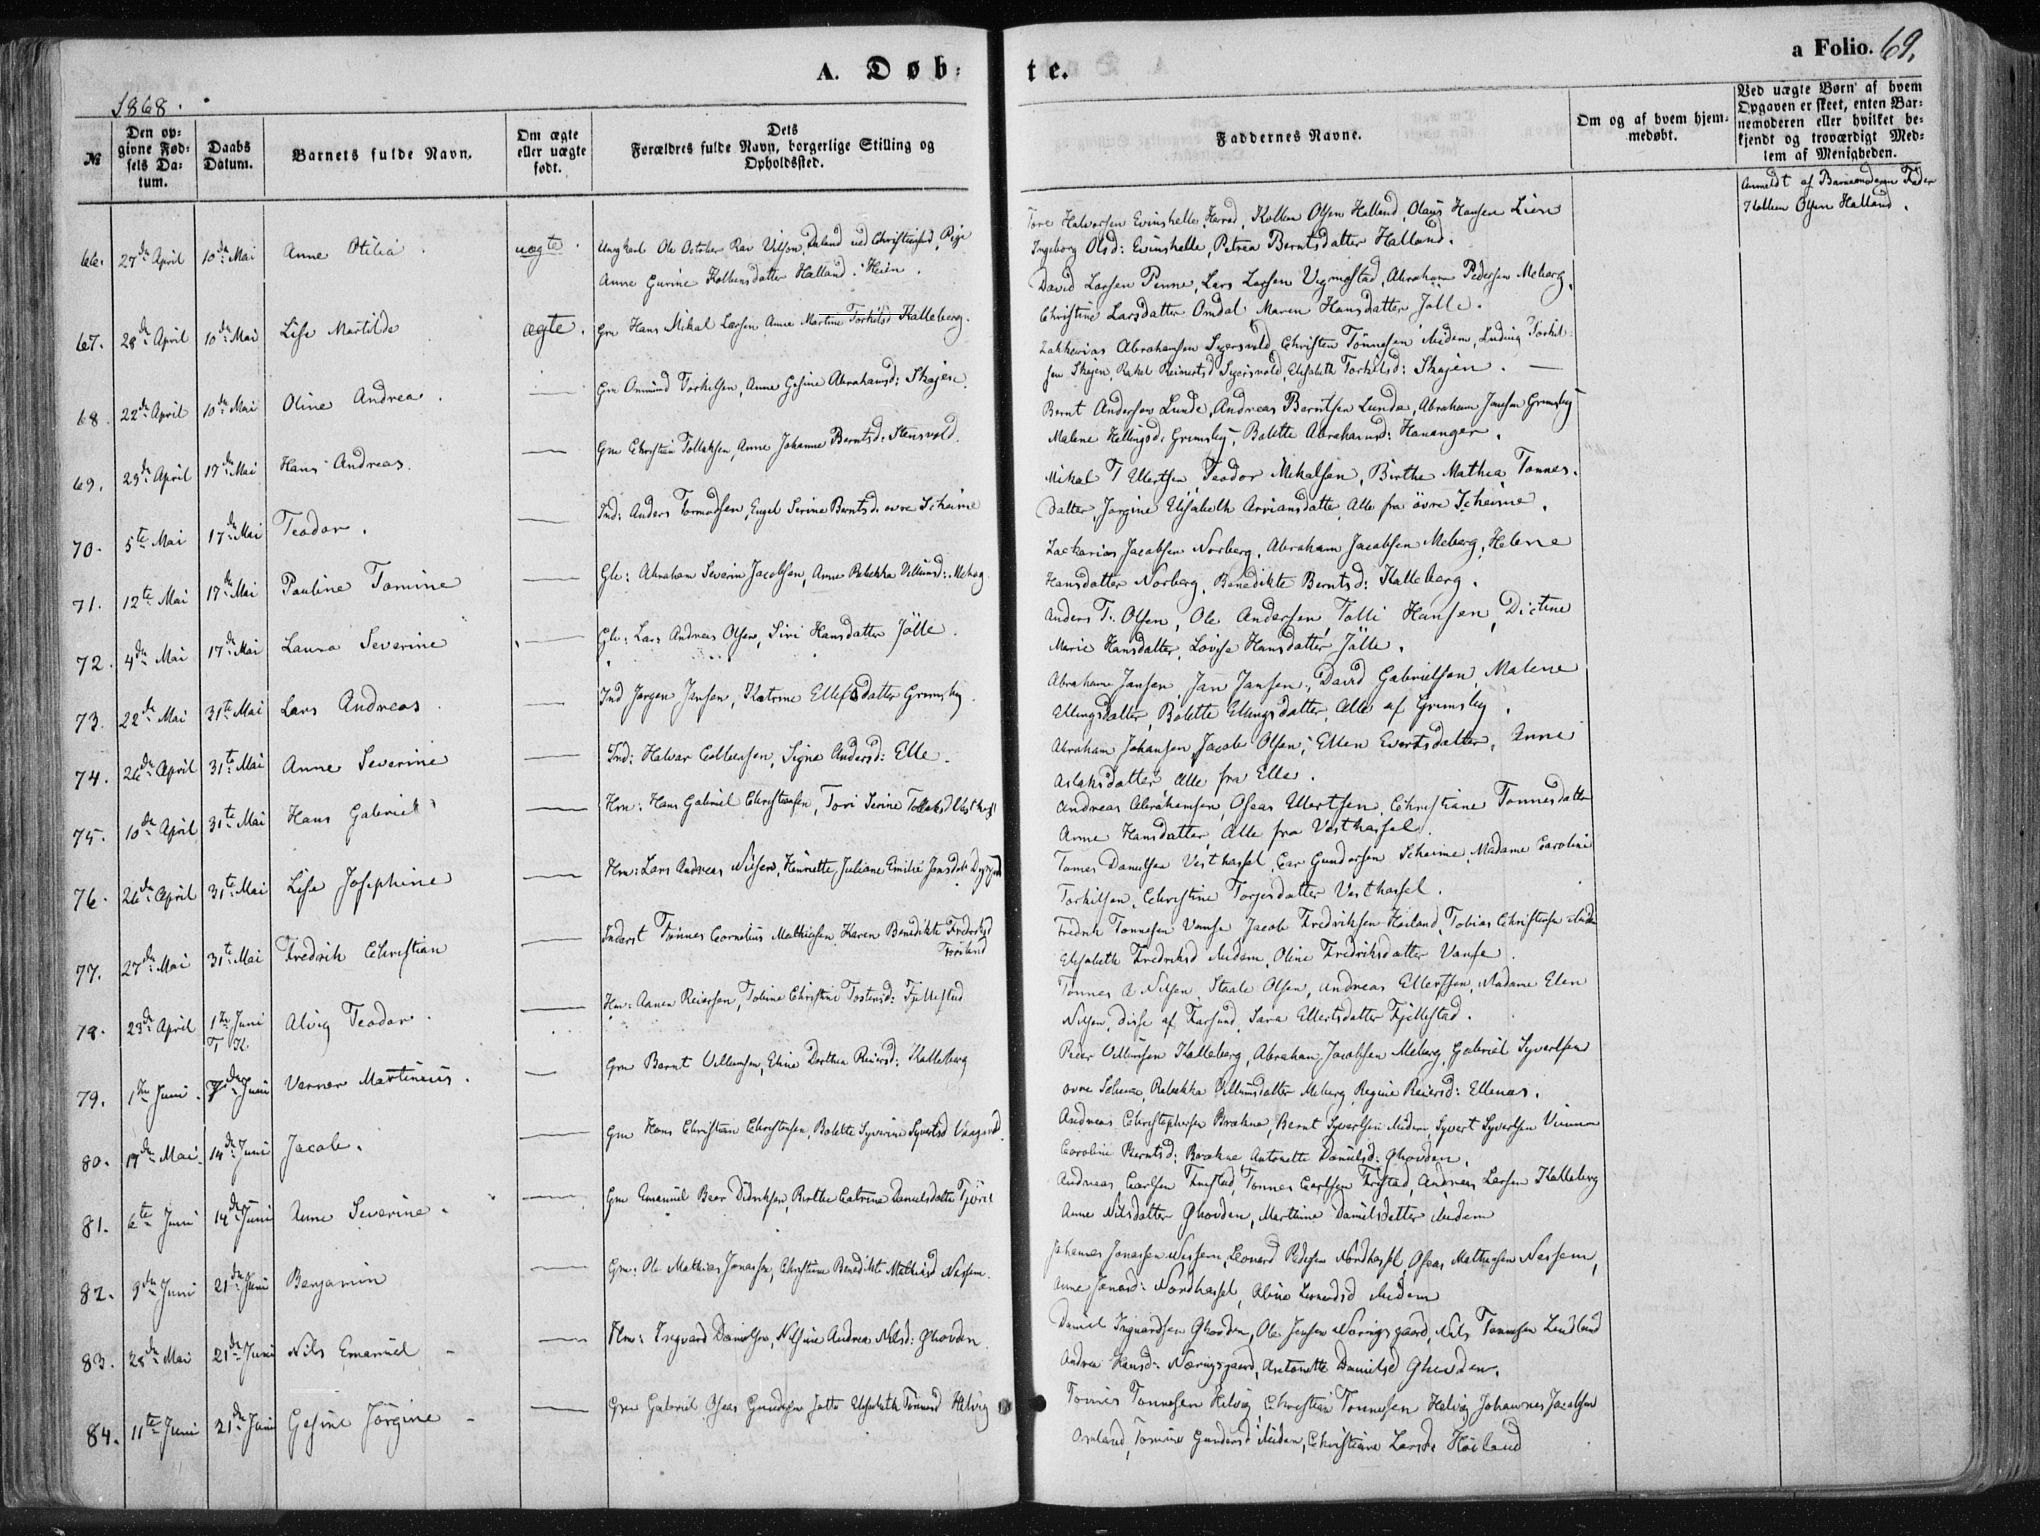 A. Døb:
te.
a Folio. 69.
1868.
№
Den op-
givne Fød-
sels Da-
tum.
Daabs
Datum.
Barnets fulde Navn.
Om ægte
eller uægte
født.
Dets
Forældres fulde Navn, borgerlige Stilling og
Opholdssted.
Faddernes Navne.
Om og af hvem hjem-
medøbt.
Ved uægte Børn af hvem
Opgaven er skeet, enten Bar-
nemoderen eller hvilket be-
kjendt og troværdigt Med-
lem af Menigheden.
66. 27de April 10de Mai Anne Otilia. uægte. Ungkarl Ole October Rav Ulson, Daland ved Christiansd, Pige
Anne Gurine Kolbensdatter Halland. Heien.
Tore Halvorsen Evinshelle, Kolben Olsen Halland, Olaus Hansen Lien
Ingeborg Olsd: Evinshelle, Petrea Berntsdatter Halland.
Anmeldt af Barnemoderen Fader
Kolben Olsen Halland.
67. 28de April 10de Mai Lise Martilde ægte. Grn Hans Mikal Larsen Anne Martine Torkilsd Kalleberg.
David Larsen Penne, Lars Larsen Vigmostad, Abraham Pedersen Meberg,
Christine Larsdatter Omdal Maren Hansdatter Jølle.
68. 22de April 10de Mai Oline Andrea. — Grn Ommund Torkelsen, Anne Gesine Abrahamsd: Skojen.
Zakkarias Abrahamsen Sigersvold, Christen Tønnesen Midem, Ludvig Torkil-
sen Skojen, Rakel Reinertsd Sigersvold, Elisabeth Torkilsd: Skojen. —
69. 29de April 17de Mai Hans Andreas. — Grn Christian Tollaksen, Anne Johanne Berntsd: Stensvold.
Bernt Andersen Lunde, Andreas Berntsen Lunde, Abraham Jansen Grimsby
Malene Hellingsd: Grimsby, Bolette Abrahamsd: Hananger.
70. 5te Mai 17de Mai Teodor. — Ind: Anders Tormodsen, Engel Serine Berntsd. øvre Scheime
Mikal T Ellertsen, Teodor Mikalsen, Birthe Mathea Tønnes-
datter, Jørgine Elisabeth Arriansdatter, Alle fra øvre Scheime.
71. 12te Mai 17de Mai Pauline Tomine — Gb: Abraham Severin Jacobsen, Anne Rebekka Villumsd: Meberg
Zackarias Jacobsen Norberg, Abraham Jacobsen Meberg, Helene
Hansdatter Norberg, Benedikte Berntsd: Kalleberg.
72. 4de Mai 17de Mai Laura Severine — Gb: Lars Andreas Olsen, Siri Hansdatter Jølle.
Anders T. Olsen, Ole Andersen, Tolli Hansen, Dictine
Marie Hansdatter, Lovise Hansdatter Jølle.
73. 22de Mai 31te Mai Lars Andreas. — Ind Jørgen Jansen, Katrine Ellefsdatter Grimsby.
Abraham Jansen, Jan Jansen, David Gabrielsen, Malene
Ellingsdatter, Bolette Ellingsdatter, Alle af Grimsby.
74. 26de April 31te Mai Anne Severine — Ind: Halvor Colbensen, Signe Andersd: Elle.
Abraham Johansen, Jacob Olsen, Ellen Evertsdatter, Anne
Aslaksdatter Alle fra Elle.
75. 10de April 31te Mai Hans Gabriel — Hm: Hans Gabriel Christensen, Tori Serine Tollaksd Vesthassel
Andreas Abrahamsen, Oseas Ellertsen, Christiane Tønnesdatter
Anne Hansdatter, Alle fra Vesthassel.
76. 26de April 31te Mai Lise Josephine — Hm: Lars Andreas Nilsen, Henriette Juliane Emilie Jonsdtr
Tønnes Danielsen Vesthassel, Gundersen Scheime, Madame Caroline
Torkilsen, Christine Torgersdatter Vesthassel.
77. 27de Mai 31te Mai Fredrik Christian — Inderst Tønnes Cornelius Mathisen, Karen Benedikte Fredriksd
Frøiland
Fredrik Tønnesen Vanse Jacob Fredriksen Høiland, Tobias Christensen
Elisabeth Fredriksd Midem, Oline Fredriksdatter Vanse.
78. 23de April 1te Juni T K. Alvig Teodor. — Hm: Aanen Reiersen, Tobine Christine Tostensd: Fjellestad
Tønnes A Nilsen, Staale Olsen, Andreas Ellertsen, Madame Elen
Nilsen, disse af Farsund, Sara Ellertsdatter Fjellestad.
79. 1te Juni. 7de Juni Verner Martinius. — Grn Bernt Villumsen, Eline Dorthea Reiersd: Kalleberg
Peder Villumsen Kalleberg, Abraham Jacobsen Meberg, Gabriel Syvertsen
øvre Scheime, Rebekka Villumsdatter Meberg, Regine Reiersd: Ellenes.
80. 17de Mai 14de Juni Jacob. — Grn Hans Christian Christensen, Bolette Syverine Syvertsd Vaagsvold.
Andreas Christophersen Brækne, Bernt Syvertsen Midem, Syvert Syvertsen
Caroline Berntsd: Brækne Antonette Danielsd: Ghovden.
81. 6te Juni 14de Juni Anne Severine. — Grn Emanuel Beer Didriksen, Birthe Catrine Danielsdatter Tjørve
Andreas Carlsen Frestad, Tønnes Carlsen Frestad, Andreas Larsen Kalleberg
Anne Nilsdatter Ghovden, Marthine Danielsdatter Midem
82. 9de Juni 21de Juni Benjamin — Grn: Ole Mathias Jonassen, Christine Benedikte Mathiasd Nessem.
Johannes Jonassen Nessem, Leonard Pedersen Nordhassel, Oseas Mathiasen Nessem,
Anne Jonasd: Nordhassel, Aline Leonardsd Midem
83. 28de Mai 21de Juni Nils Emanuel — Hm: Ingvard Danielsen, Nilsine Andrea Nilsd: Ghovden.
Daniel Ingvardsen Ghovden, Ole Jensen Næringsgaard, Nils Tønnesen Lindland
Andrea Hansd: Næringsgaard, Antonette Danielsd Ghovden.
84. 11te Juni 21de Juni Gesine Jørgine — Grn Gabriel Oseas Gundersen Jette Elisabeth Tønnesd Helvig
Tønnes Tønnesen Helvig, Christian Tønnesen Helvig Johannes Jacobsen
Omland, Tomine Gundersd Midem, Christiane Larsd: Høiland